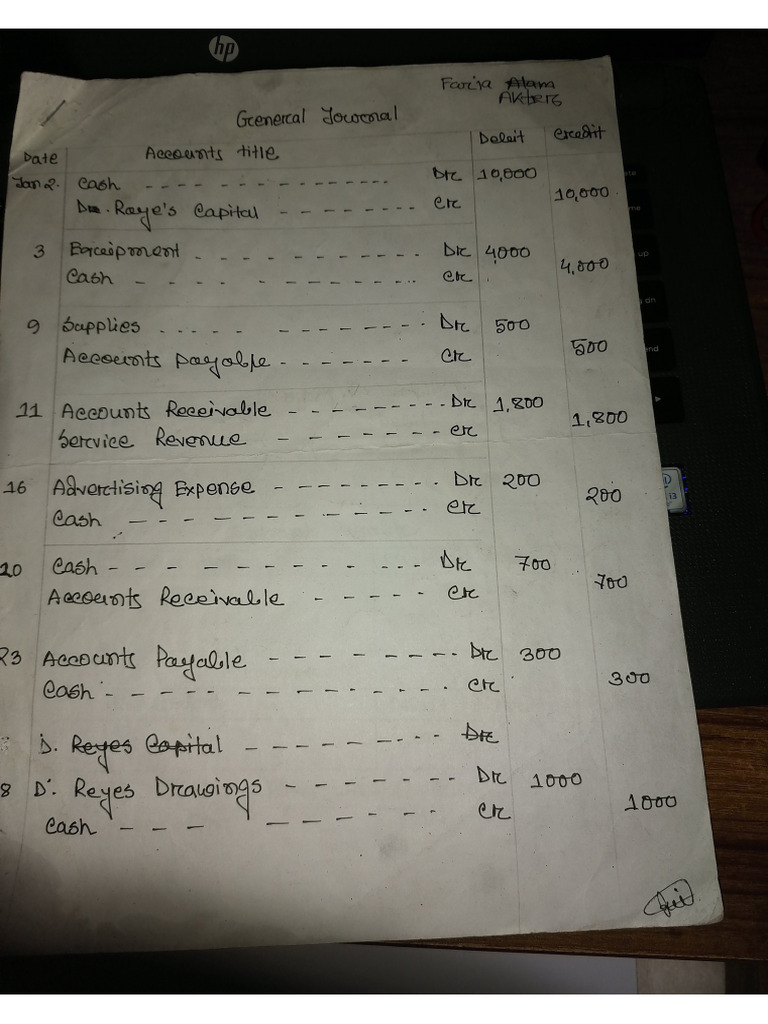 hp
Fariya Alam
Akter
General Journal
Date Accounts title Debit Credit
Jan 2. Cash - - - - - - - - - - - - - - - - Dr 10,000
Dr. Raye's Capital - - - - - - - - Cr 10,000
3 Equipment - - - - - - - - - - - Dr 4,000
Cash - - - - - - - - - - - - - Cr 4,000
9 Supplies - - - - - - - - - - - - - Dr 500
Accounts payable - - - - - - - Cr 500
11 Accounts Receivable - - - - - - - - - Dr 1,800
Service Revenue - - - - - - - Cr 1,800
16 Advertising Expense - - - - - - - - Dr 200
Cash - - - - - - - - - - - - - Cr 200
20 Cash - - - - - - - - - - - - - Dr 700
Accounts Receivable - - - - - Cr 700
23 Accounts Payable - - - - - - - - Dr 300
Cash - - - - - - - - - - - - - - Cr 300
D. Reyes Capital - - - - - - - - - Dr
8 D. Reyes Drawings - - - - - - - Dr 1000
Cash - - - - - - - - - Cr 1000